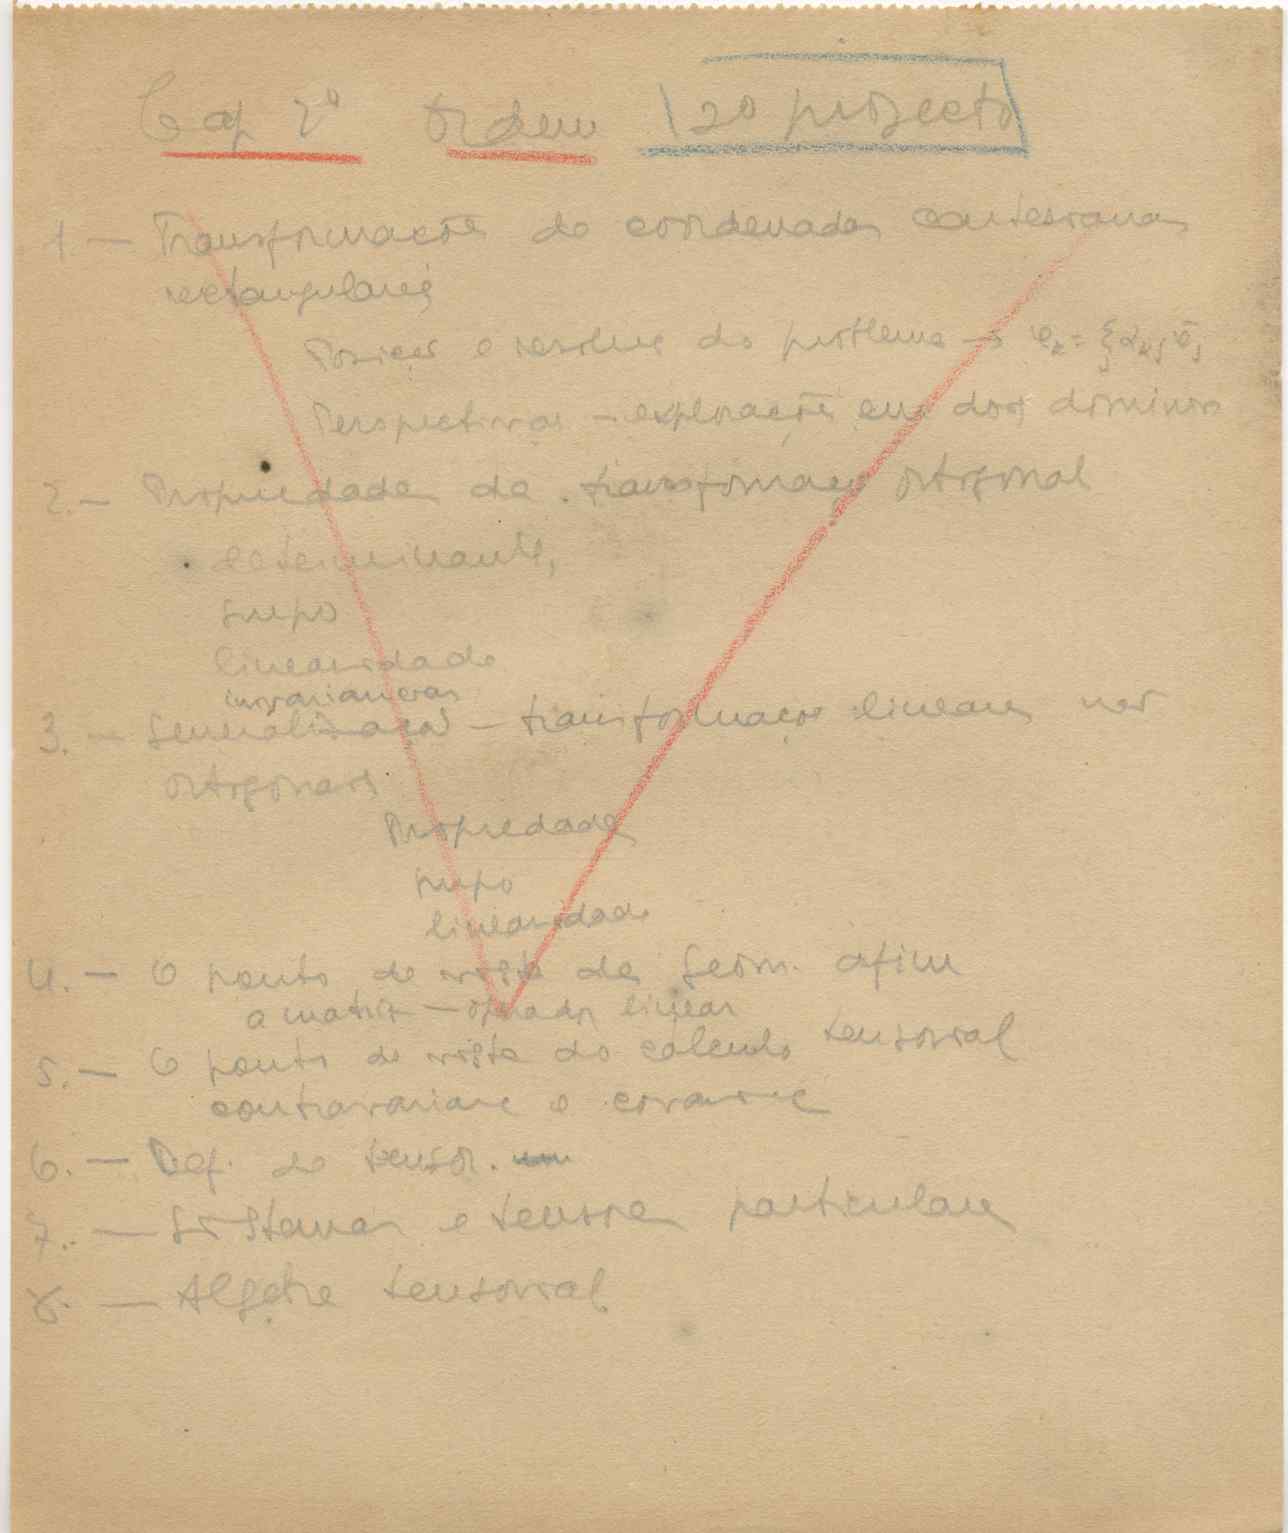 Cap 2º Ordem 2º projecto
1. — Transformações de coordenadas cartesianas
rectangulares
Posição e resoluc do problema → e̅
Perspectivas — explorações em dois dominios
2. — Propriedades da transformação ortogonal
determinante,
grupo
linearidade
invariancias
3. — Generalização — transformações lineares não
ortogonais
Propriedades
grupo
linearidade
4. — O ponto de vista da Geom. afim
a matriz — operador linear
5. — O ponto de vista do calculo tensorial
contravariante e covariante
6. — Def. de tensor.
7. — Sistemas e tensores particulares
8. — Algebra tensorial